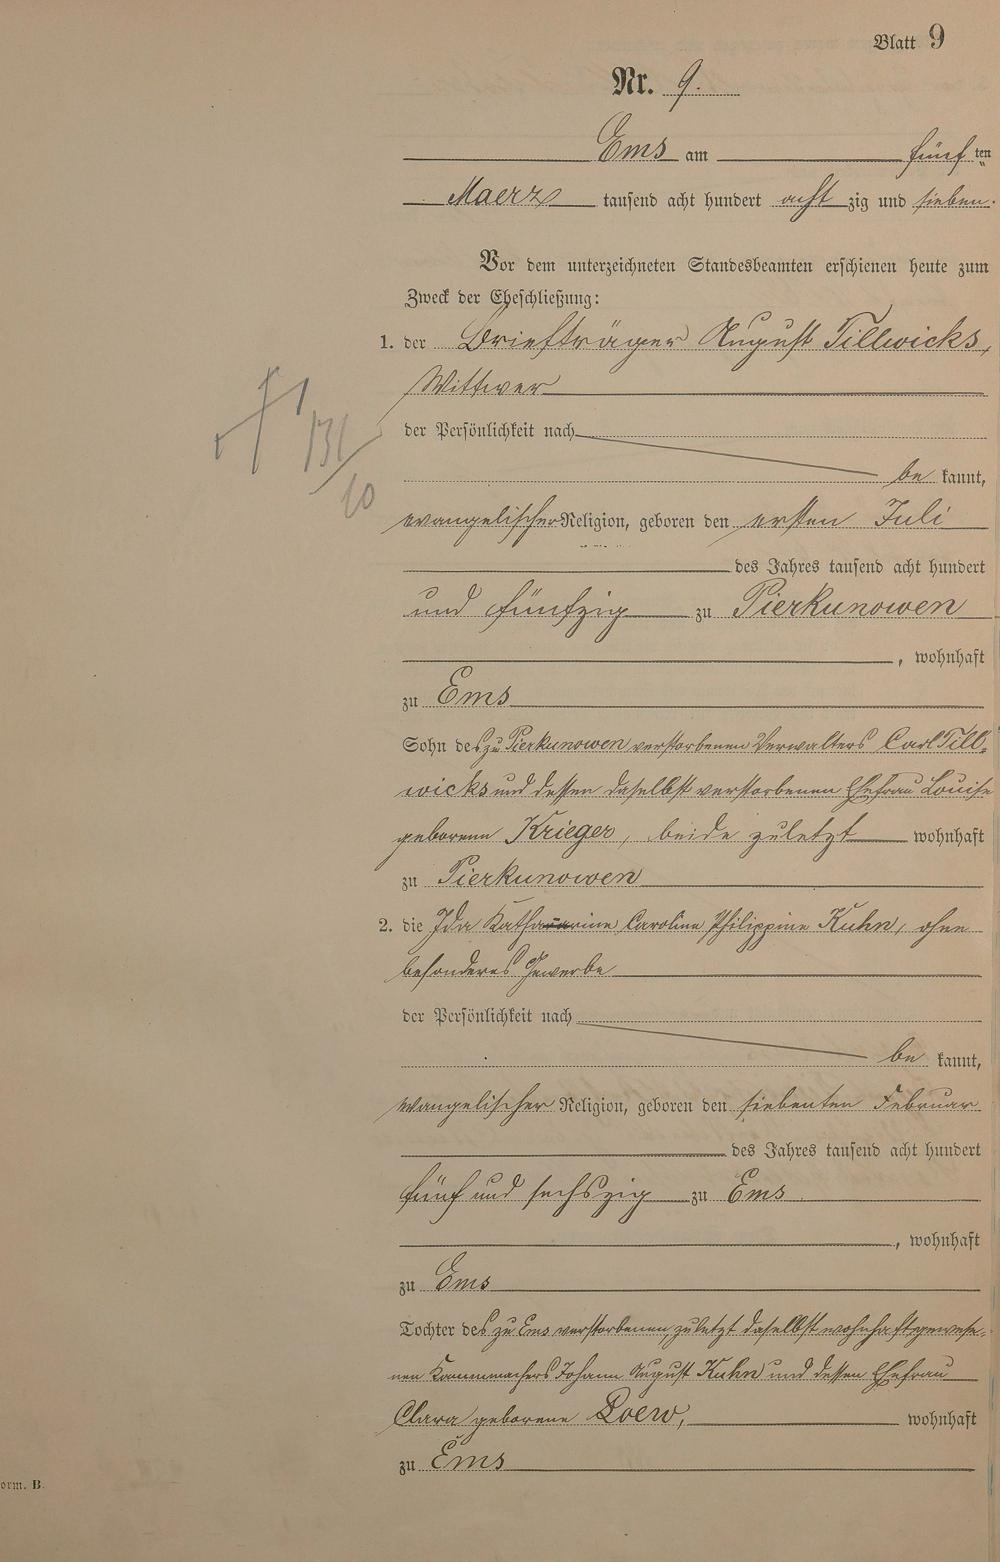 Blatt 9
Nr. 9.
Ems am fünf ten
Maerz tausend acht hundert acht zig und sieben.
Vor dem unterzeichneten Standesbeamten erschienen heute zum
Zweck der Eheschließung:
1. der Briefträger August Tillwicks,
Wittwer
der Persönlichkeit nach
be kannt,
evangelischer Religion, geboren den ersten Juli
des Jahres tausend acht hundert
und fünfzig zu Pierkunowen
, wohnhaft
zu Ems
Sohn des zu Pierkunowen verstorbenen Verwalters Carl Till-
wicks und dessen daselbst verstorbenen Ehefrau Louise
geborenen Krieger, beide zuletzt wohnhaft
zu Pierkunowen
2. die Ida Katharine Caroline Philippine Kuhn, ohne
besonderes Gewerbe
der Persönlichkeit nach
be kannt,
evangelischer Religion, geboren den siebenten Februar
des Jahres tausend acht hundert
fünf und sechszig zu Ems
, wohnhaft
zu Ems
Tochter des zu Ems verstorbenen, zuletzt daselbst wohnhaft gewese-
nen Kammmachers Johann August Kuhn und dessen Ehefrau
Clara geborene Loew, wohnhaft
zu Ems
orm. B.